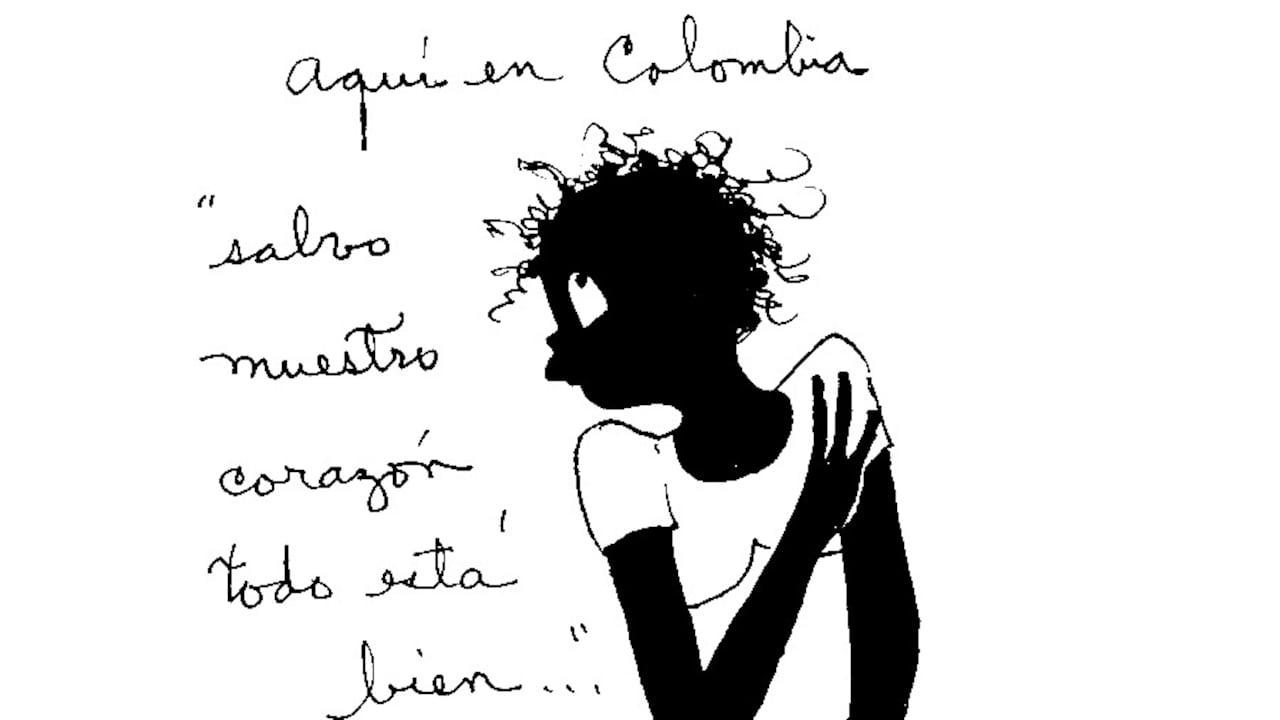 aquí en Colombia
"salvo
nuestro
corazón
todo está
bien..."